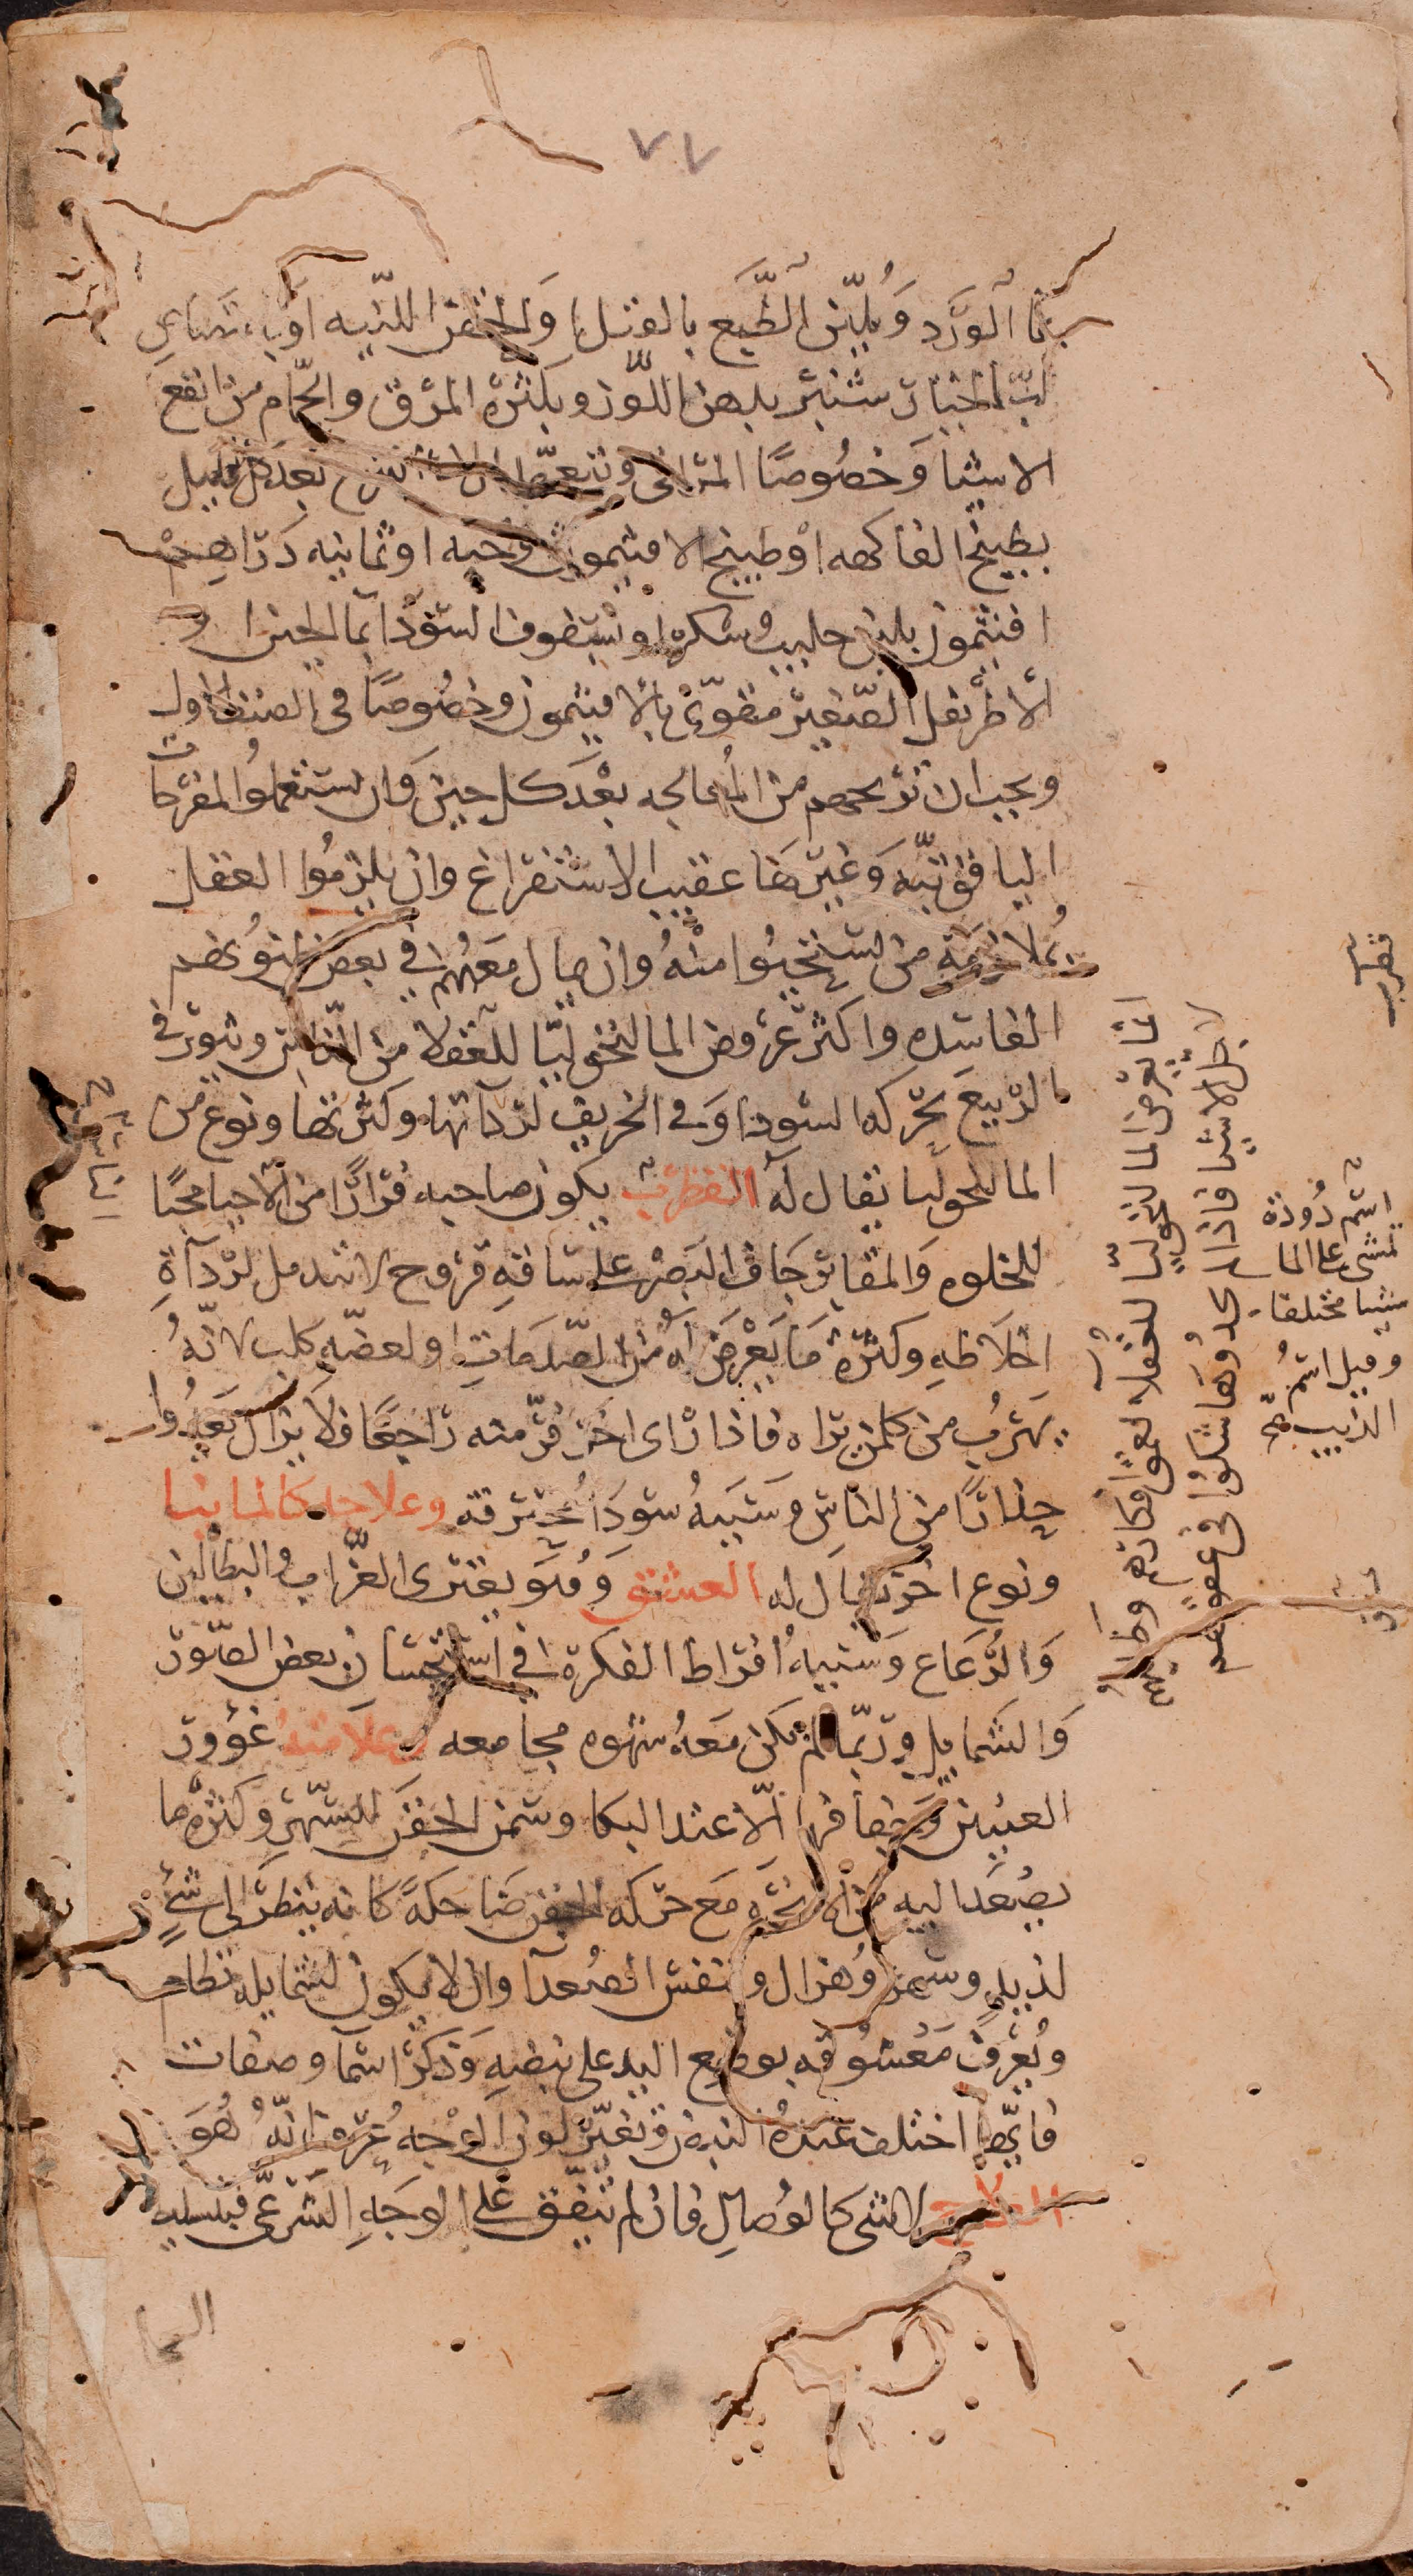 ٧٧
بماء الورد ويلين الطبع بالفتل والحقن اللينه او بماء تصاعي
لب الخيار شنبر بدهن اللوز وبكثرة المرق والحمام من انفع
الاشيا وخصوصًا المراقى بعد كل قليل
بطبيخ الفاكهه او طبيخ الافتيمون وحبه او ثمانيه دراهم
افتيمون بلبن حليب وسكر او سفوف السودا بما الجبن او
الاطريفل الصغير مقوى بالافتيمون وخصوصًا فى الصنف الاول
ويجب ان تريحهم من المعالجه بعد كل حين وان يستعملوا المفرحات
الياقوتيه وغيرها عقيب الاستفراغ وان يلزموا العقل
بملازمة من يستحيوا منه وان مال معهم في بعض ظنونهم
الفاسده واكثر عروض المالنخوليا للعقلا من الناس ويثور فى
الربيع لحركه السودا وفى الخريف لرداتها وكثرتها ونوع من
المالنخوليا يقال له القطرب يكون صاحبه فرارًا من الاحيا محبًا
للخلوه والمقابر جاف البصر على ساقه قروح لا تندمل لردآة
اخلاطه وكثرة ما يعرض له من الصدمات او لعضه كلب لانه
يهرب من كل من يراه فاذا راى اخر فر منه راجعًا فلا يزال يعدوا
حذارًا من الناس وسببه سودا محترقه وعلاجه كالمانيا
ونوع اخر يقال له العشق وهو يعترى العزاب والبطالين
والرعاع وسببه افراط الفكرة فى استحسان بعض الصور
والشمايل وربما لم يكن معه شهوه مجامعه وعلامته غوور
العينين وجفافها الا عند البكا وسمن الجفن للسهر وكثرة ما
يصعد اليه من الابخره مع حركه الجفن ضاحكةً كانه ينظر الى شئ
لذيذ وهزال ونفس الصعدا وان لا يكون لشمايله نظام
ويعرف معشوقه بوضع اليد على نبضه وذكر اسما وصفات
فايها اختلف عنده النبض وتغير لون الوجه عرف انه هو
العلاج لا شى كالوصال فان لم يتفق على الوجه الشرعى فبتسليه
قطرب
انما يعرض المالنخوليا للعقلا
لاجل الاشيا فاذا لم يجدوها شكوا فى عقولهم
اسم دودة
تمشى على الما
مشيا مختلفا
وقيل اسم
الذيب